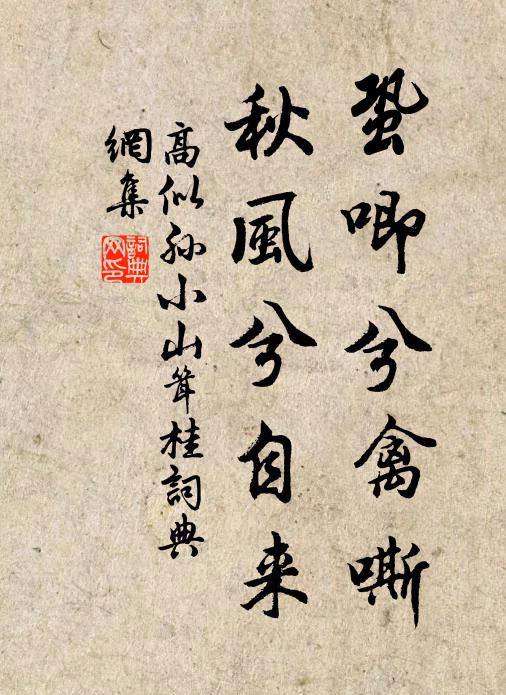 蛩唧兮禽嘶
秋風兮自来
高似孙小山丛桂詞典
網集
詞典
网印